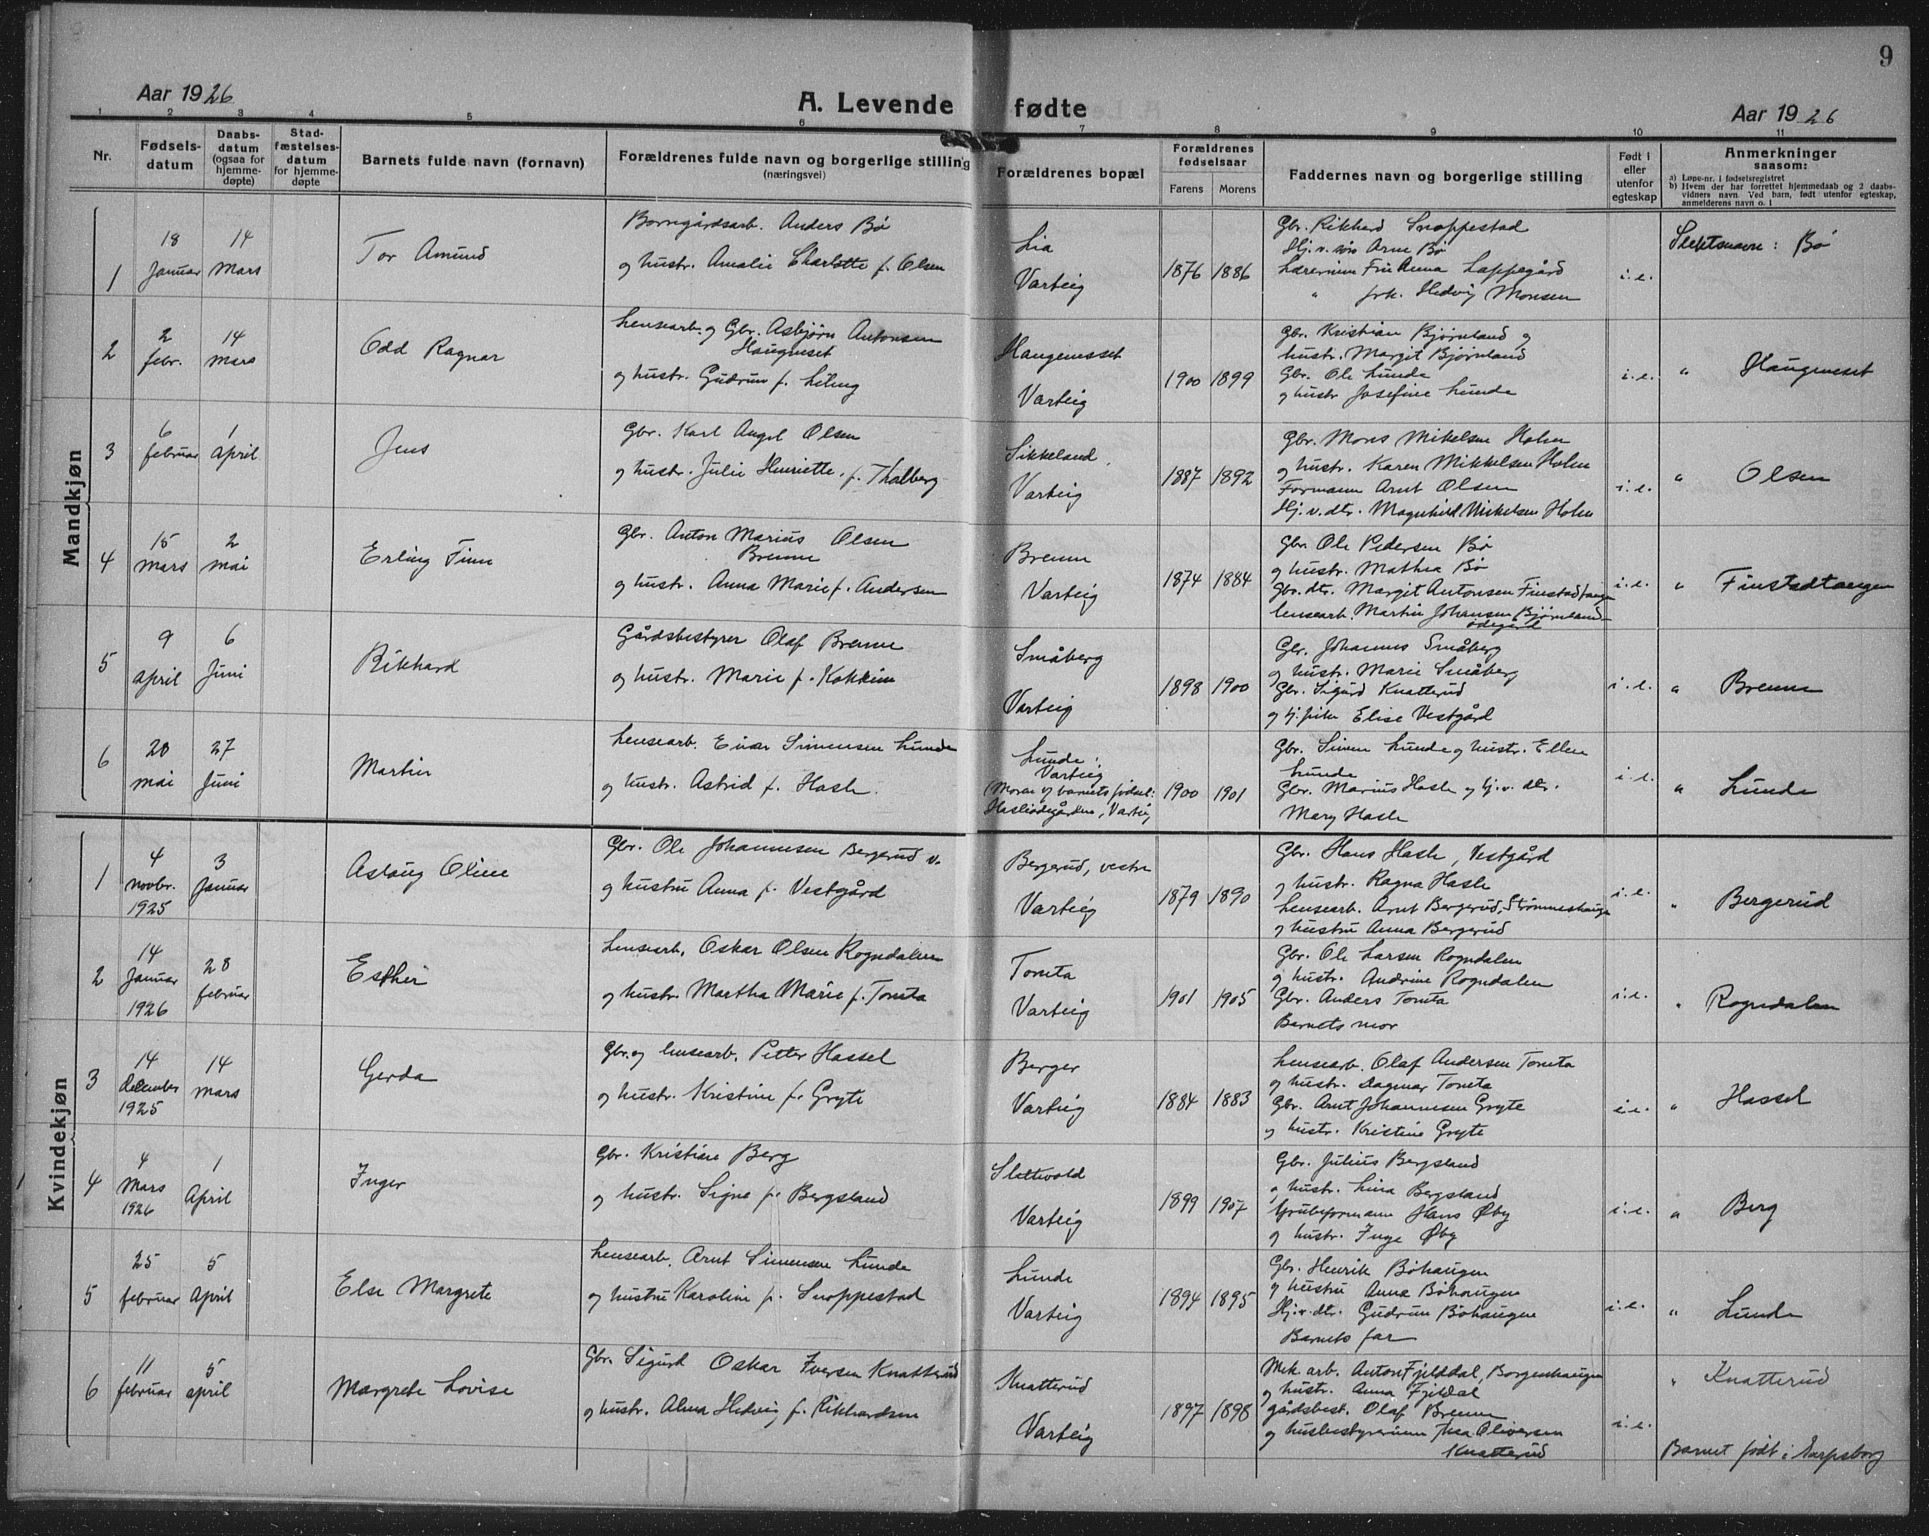 9
Aar 1926
A. Levende fødte
Aar 1926
1 2 3 4 5 6 7 8 9 10 11
Nr.
Fødsels-
datum
Daabs-
datum
(ogsaa for
hjemme-
døpte)
Stad-
fæstelses-
datum
for hjemme-
døpte
Barnets fulde navn (fornavn)
Forældrenes fulde navn og borgerlige stilling
(næringsvei)
Forældrenes bopæl
Forældrenes
fødselsaar
Farens Morens
Faddernes navn og borgerlige stilling
Født i
eller
utenfor
egteskap
Anmerkninger
saasom:
a) Løpe-nr. i fødselsregistret
b) Hvem der har forrettet hjemmedaab og 2 daabs-
vidners navn. Ved barn, født utenfor egteskap,
anmelderens navn o. l
Mandkjøn
1
18
Januar
14
Mars
Tor Amund
Anders Bø
og hustr. Amalie Charlotte f. Olsen
Lia
Varteig
1876 1886
Gbr. Rikhard Snoppestad
Hj. v. søn Arne Bø
Lærerinne Frk Anna Lappegård
" frk. Hedvig Monsen
i. e.
Slektsnavn: Bø
2
2
febr.
14
Mars
Odd Ragnar
Lensearb. og Gbr. Asbjørn Antonsen
Haugneset
og hustr. Gudrun f.
Haugenesset
Varteig
1900 1899
Gbr. Kristian Bjørnland og
hustr. Margit Bjørnland
Gbr. Ole Lunde
og hustr Josefine Lunde
i. e.
" Haugeneset
3
6
februar
1
april
Jens
Gbr. Karl Angel Olsen
og hustr. Julie Henriette f. Thalberg
Sikkeland
Varteig
1887 1892
Gbr. Mons Mikelsen Holen
og hustr. Karen Mikkelsen Holen
Formann Arnt Olsen
Hj. v. dtr. Magnhild Mikelsen Holen
i. e.
" Olsen
4
15
Mars
2
mai
Erling Finn
Gbr. Anton Marius Olsen
Brenne
og hustr. Anna Marie f. Andersen
Brenne
Varteig
1874 1884
Gbr. Ole Pedersen Bø
og hustr. Mathea Bø
Gbr. dtr. Margit Antonsen Finstadtangen
lensearb. Martin Johansen Bjørnland-
ødegård
i. e.
" Finstadtangen
5
9
April
6
Juni
Rikhard
Gårdsbestyrer Olaf Brenne
og hustr. Marie f. Kokkim
Småberg
Varteig
1898 1900
Gbr. Johannes Småberg
og hustr. Marie Småberg
Gbr. Sigurd Knatterud
og hj. pike Elise Vestgård
i. e.
" Brenne
6
20
mai
27
Juni
Martin
Lensearb. Einar Simensen Lunde
og hustr. Astrid f. Hasle.
Lunde:
Varteig
(Moren v/ barnets fødsel:
Hasleødegården, Varteig
1900 1901
Gbr. Simen Lunde og hustr. Ellen
Lunde
Gbr. Marius Hasle og hj. v. dtr.
Mary Hasle
i. e.
" Lunde
Kvindekjøn
1
4
novbr.
1925
3
Januar
Aslaug Oline
Gbr. Ole Johannesen Bergerud v.
og hustru Anna f. Vestgård
Bergerud, vestre
Varteig
1879 1890
Gbr. Hans Hasle, Vestgård
og hustr. Ragna Hasle
Lensearb. Arnt Bergerud, Strømneshaugen
og hustru Anna Bergerud
i. e.
" Bergerud
2
14
Januar
1926
28
februar
Esther
Lensearb. Oskar Olsen Rogndalen
og hustr. Martha Marie f. Tomta
Tomta
Varteig
1901 1905
Gbr. Ole Larsen Rogndalen
og hustr. Andrine Rogndalen
Gbr. Anders Tomta
Barnets mor
i. e.
" Rogndalen
3
14
december
1925
14
mars
Gerda
Gbr. og lensearb. Petter Hassel
og hustr. Kristine f. Gryte
Berger
Varteig
1884 1883
Lensearb. Olaf Andersen Tomta
og hustr. Dagmar Tomta
Gbr. Arnt Johannesen Gryte
og hustr. Kristine Gryte
i. e.
" Hassel
4
4
Mars
1926
1
April
Inger
Gbr. Kristian Berg
og hustr. Signe f. Bergsland
Slettvold
Varteig
1899 1907
Gbr. Julius Bergsland
og hustr. Lina Bergsland
Grubeformann Hans Øby
og hustr. Inga Øby
i. e.
" Berg
5
25
februar
5
April
Else Margrete
Lensearb. Arnt Simensen Lunde
og hustru Karoline f. Snoppestad
Lunde
Varteig
1894 1895
Gbr. Henrik Bøhaugen
og hustru Anna Bøhaugen
Hj. v. dtr. Gudrun Bøhaugen
Barnets far
i. e.
" Lunde
6
11
februar
5
april
Margrete Lovise
Gbr. Sigurd Oskar Iversen Knatterud
og hustr. Alma Hedvig f. Rikhardsen
Knatterud
Varteig
1897 1898
Mek. arb. Anton Fjelddal, Borgenhaugen
og hustr. Anna Fjeldal
gårdsbest. Olaf Brenne
og husbestyrerinne Thea Oliversen
Knatterud
i. e.
" Knatterud
Barnet født i Sarpsborg